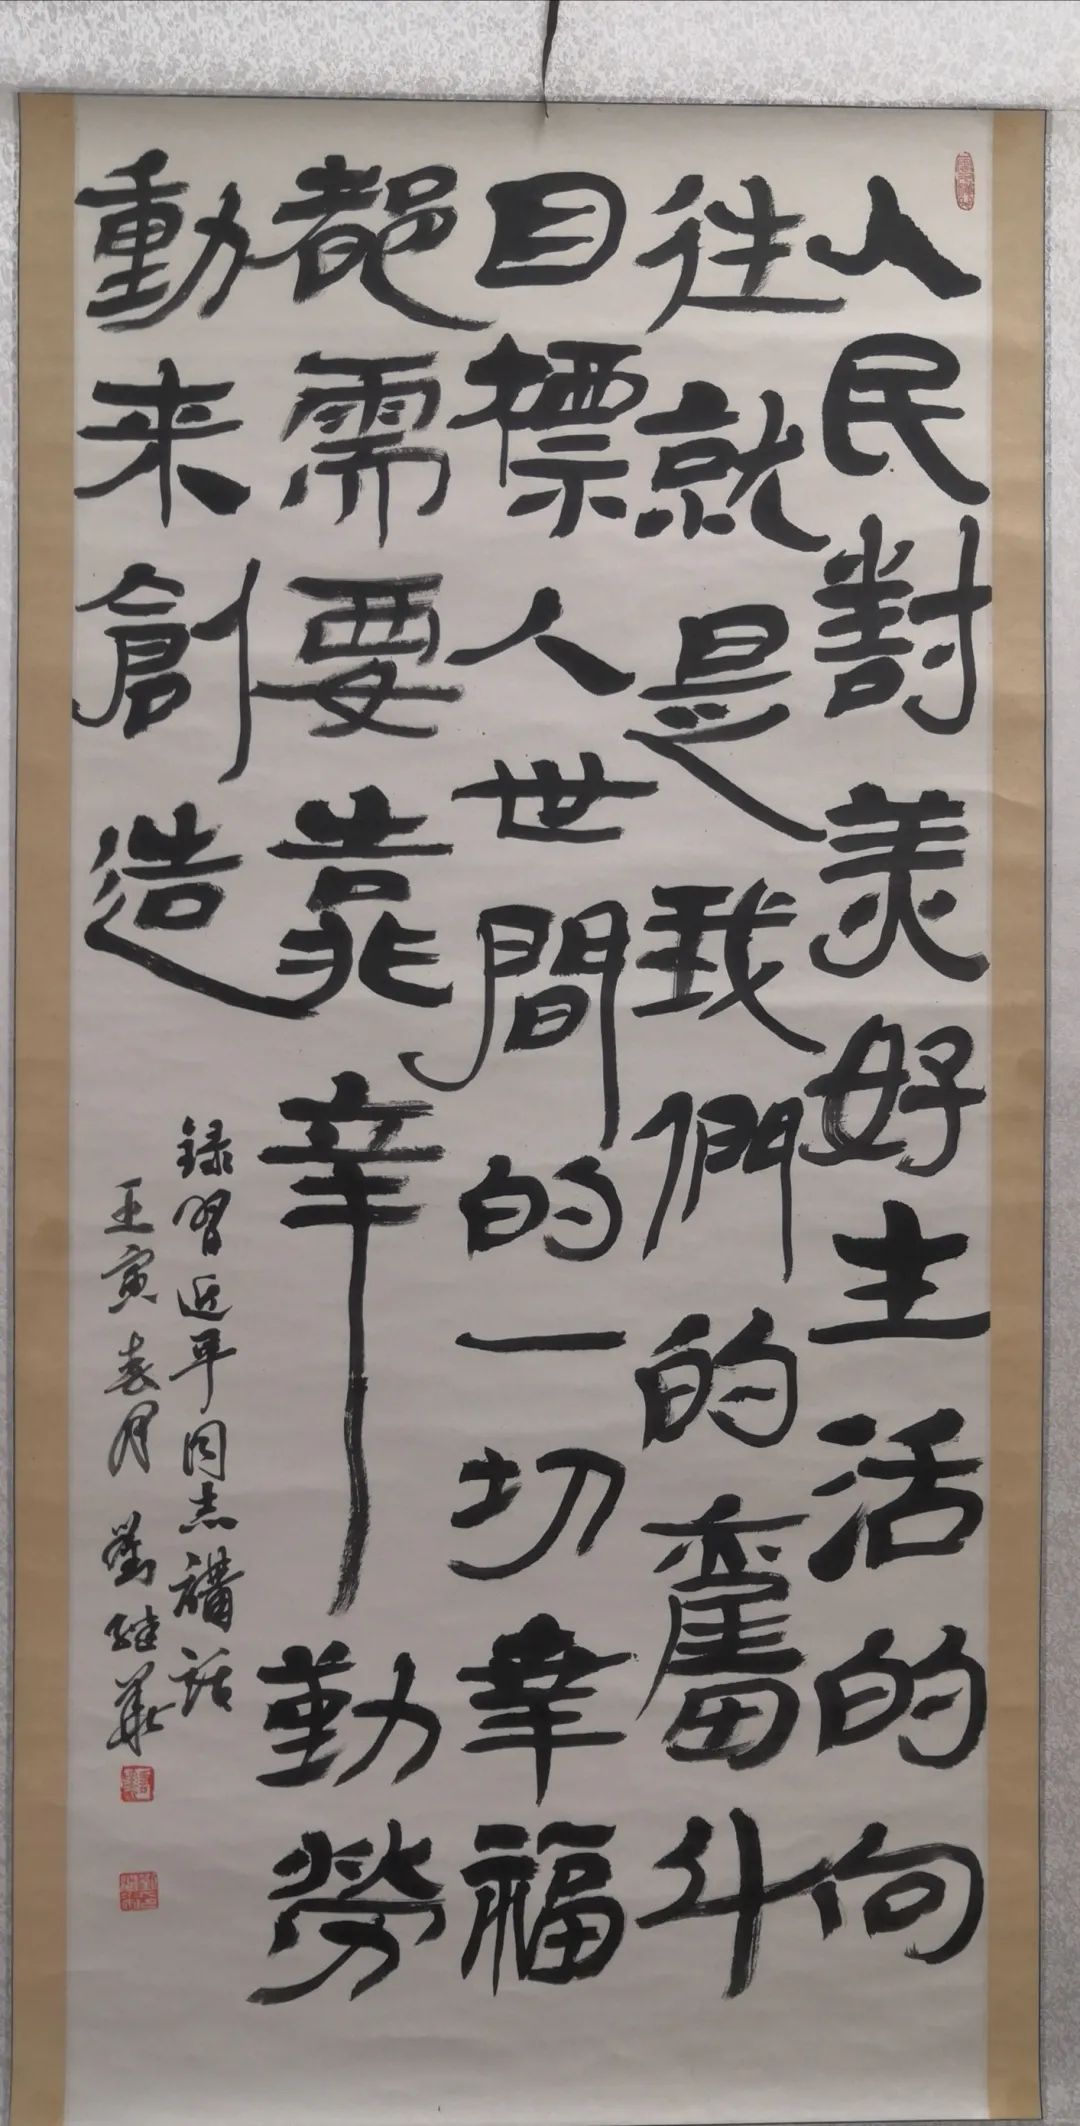 人民對美好生活的向
往就是我們的奮斗
目標人世間的一切幸福
都需要靠辛勤勞
動来創造
録習近平同志講話
壬寅春月劉继義